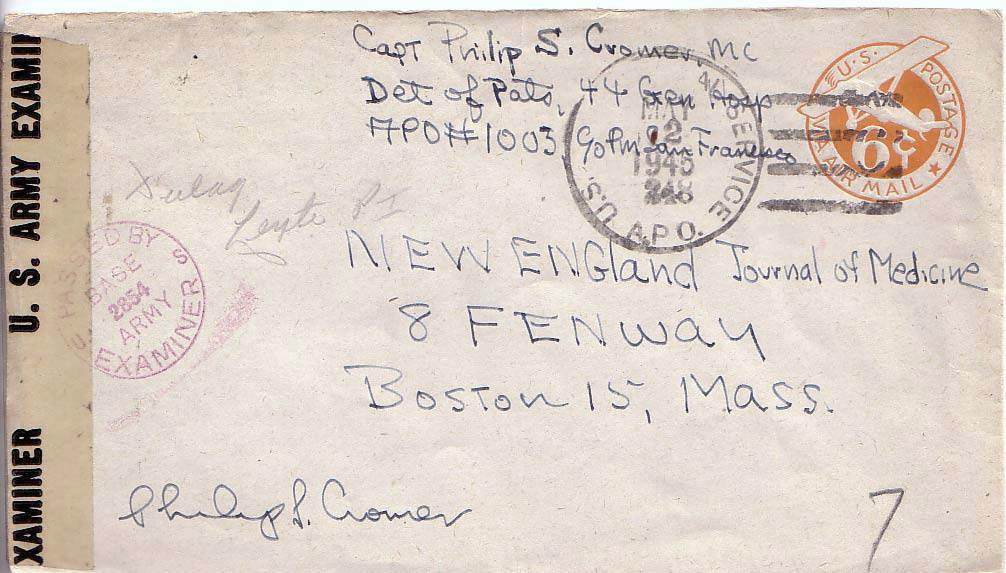 Capt Philip S. Cromer, MC
Det of Pats, 44 Gen Hosp
APO#1003 % Pm San Francisco
U.S. POSTAGE
6¢
VIA AIR MAIL
SERVICE
MAY
12
1945
U.S. A.P.O.
Leyte PI
PASSED BY
BASE
2854
ARMY
EXAMINER
U.S.
NEW ENGLand Journal of Medicine
8 FENWAY
Boston 15, Mass.
Philip S. Cromer
7
XAMINER U. S. ARMY EXAMI